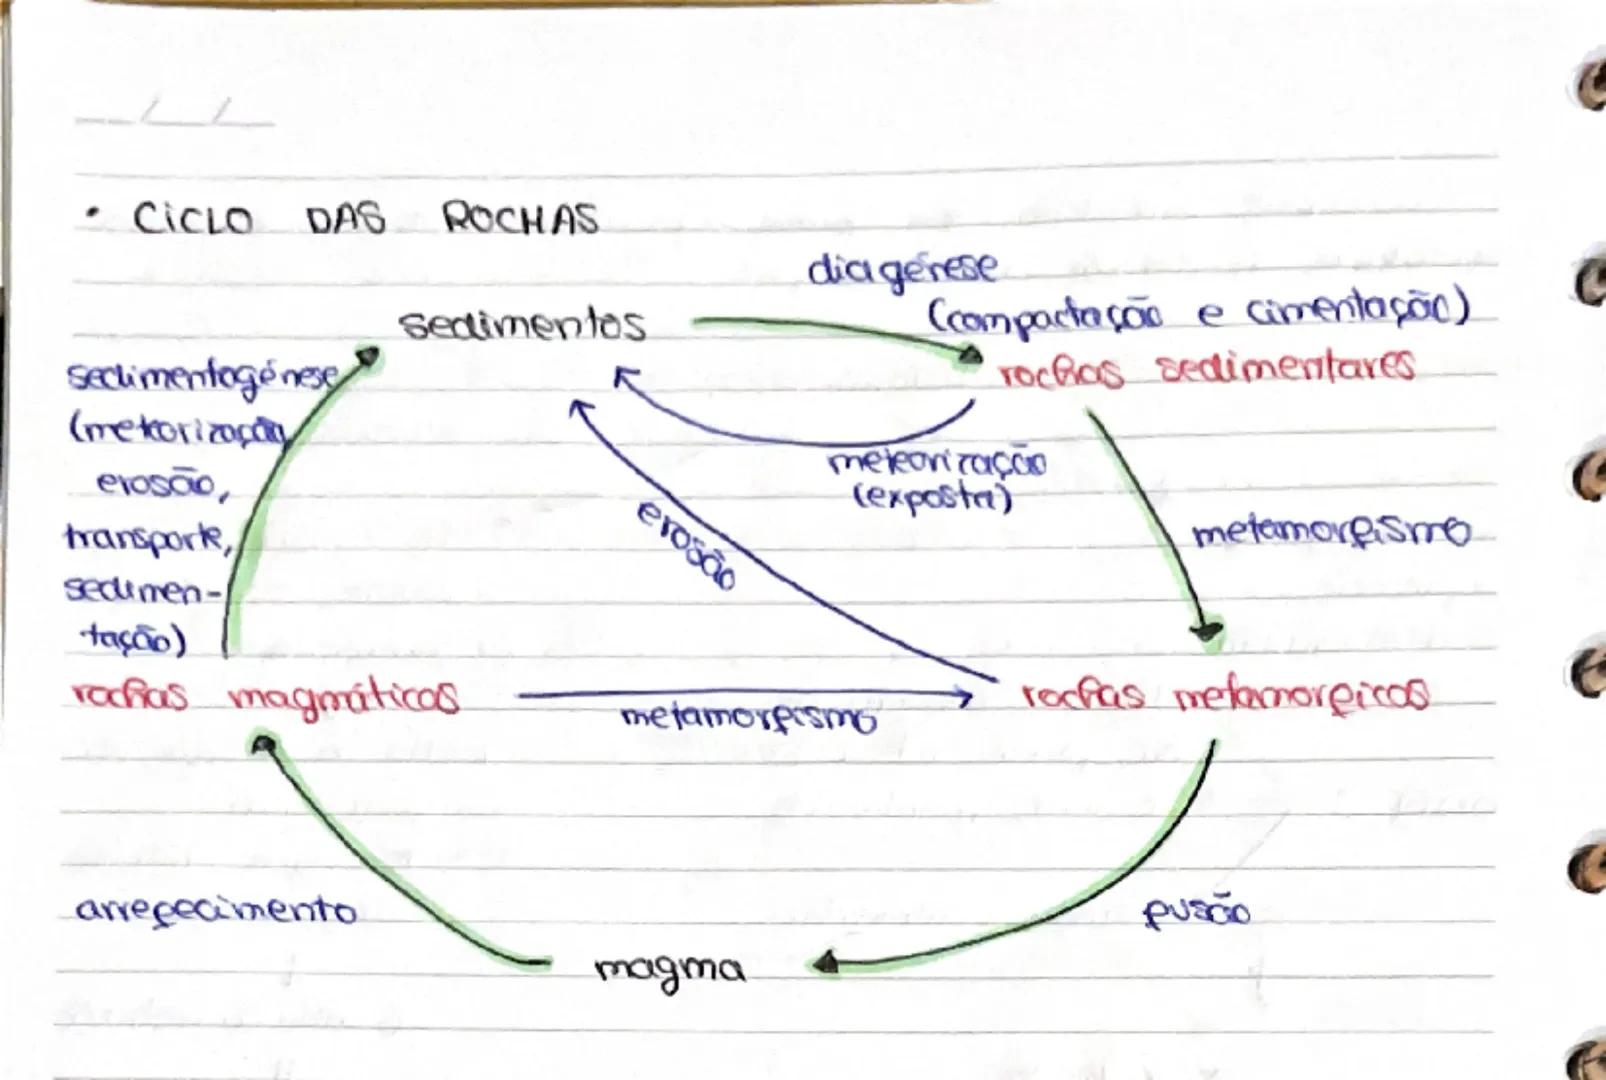 • CICLO DAS ROCHAS
diagénese
(compactação e cimentação)
sedimentos
rochas sedimentares
sedimentogénese
(meteorização,
erosão,
transporte,
sedimen-
tação)
meteorização
(exposta)
erosão
metamorfismo
rochas magmáticas
metamorfismo
rochas metamórficas
arrefecimento
fusão
magma